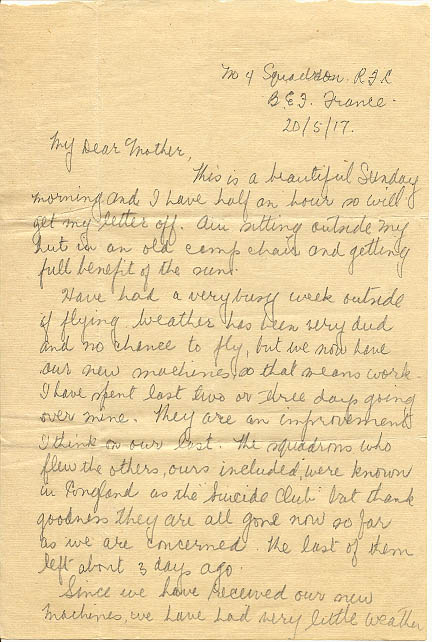 No 4 Squadron. R F C
B.E.F. France.
20/5/17.
My Dear Mother,
This is a beautiful Sunday
morning and I have half an hour so will
get my letter off. Am sitting outside my
hut in an old camp chair and getting
full benefit of the sun.
Have had a very busy week outside
of flying. Weather has been very dud
and no chance to fly, but we now have
our new machines, so that means work.
I have spent last two or three days going
over mine. They are an improvement
I think on our last. The squadrons who
flew the others, ours included, were known
in England as the "Suicide Club" but thank
goodness they are all gone now so far
as we are concerned. The last of them
left about 3 days ago.
Since we have received our new
machines, we have had very little weather